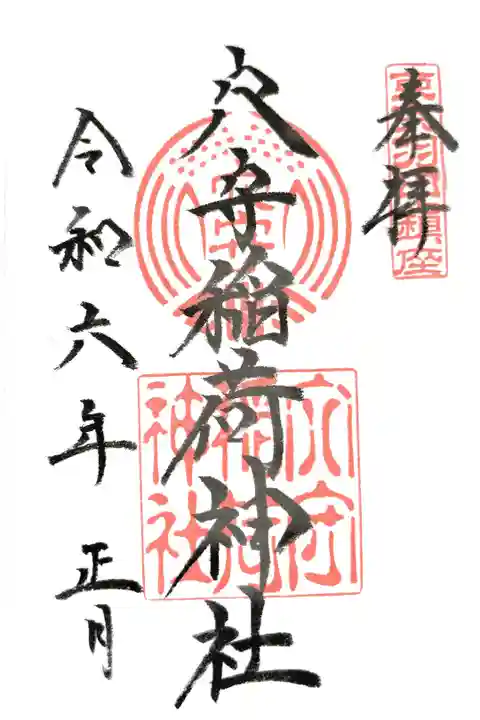 奉拝
東羽田鎮座
穴守稲荷神社
穴守稲荷神社
令和六年 正月